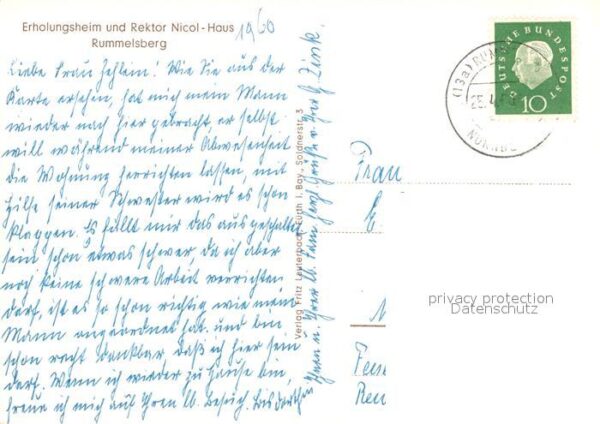 Erholungsheim und Rektor Nicol-Haus
Rummelsberg
1960
Liebe Frau Zehlein! Wie Sie aus der
Karte ersehen, hat mich mein Mann
wieder nach hier gebracht, er selbst
will während meiner Abwesenheit
die Wohnung herrichten lassen, mit
Hilfe seiner Schwester wird es schon
klappen. Es fällt mir das ausgeschaltet
sein schon etwas schwer, da ich aber
noch keine schwere Arbeit verrichten
darf, ist es so schon richtig wie mein
Mann angeordnet hat. und bin
schon recht dankbar, daß ich hier sein
darf. Wenn ich wieder zu Hause bin,
freue ich mich auf Ihren lb. Besuch. Bis dorthin
Ihnen u. Ihrer lb. Fam. herzl. Grüße v. Ihrer G. Zink.
Verlag Fritz Lauterbach, Fürth i. Bay., Soldnerstr. 3
DEUTSCHE BUNDESPOST
10
(13a)
Frau
E.
N
privacy protection
Datenschutz